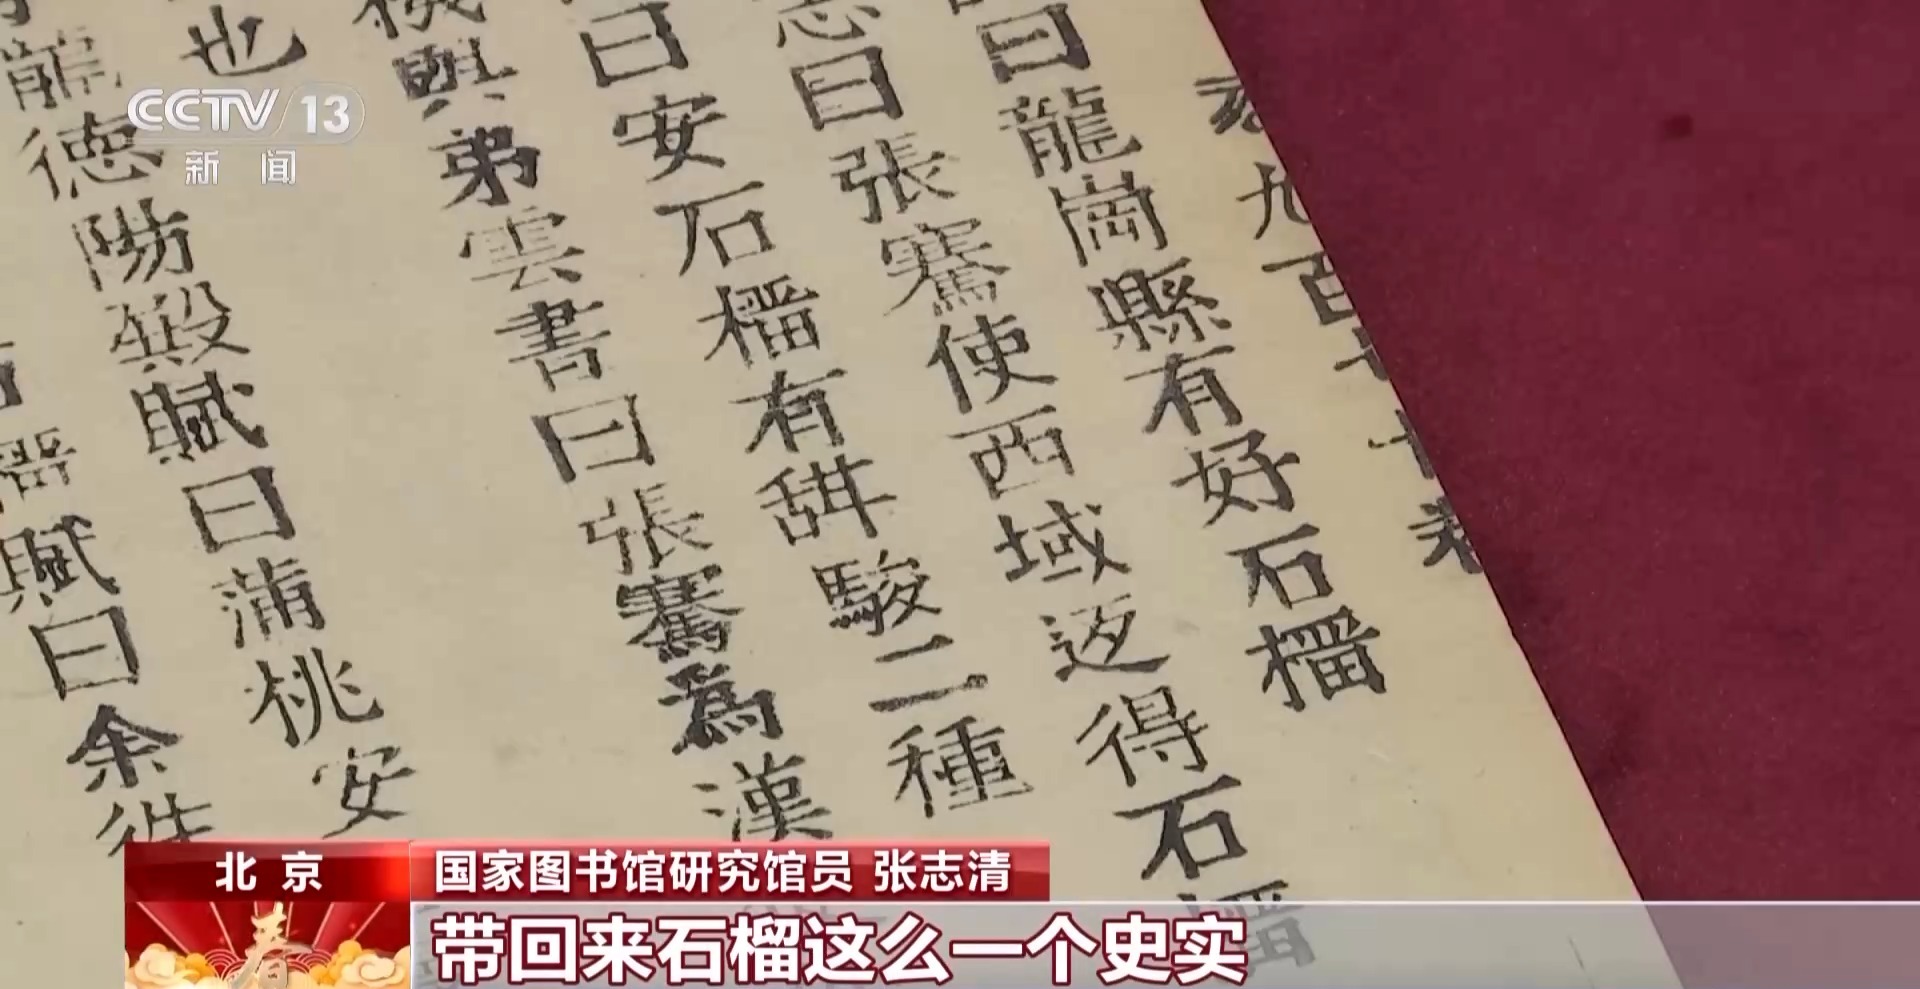 CCTV 13
新闻
九百七十
曰龍崗縣有好石橊
志曰張騫使西域返得石橊
曰安石橊有甜駿二種
機與弟雲書曰張騫為漢
也
龍德陽殿賦曰蒲桃安
橊賦曰余
北京
国家图书馆研究馆员 张志清
春
带回来石榴这么一个史实